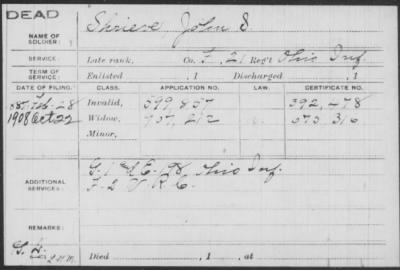 DEAD
NAME OF SOLDIER: Shrieve, John S
SERVICE: Late rank, Co. F, 21 Reg't Ohio Inf.
TERM OF SERVICE: Enlisted , 1 Discharged , 1
DATE OF FILING. CLASS. APPLICATION NO. LAW. CERTIFICATE NO.
Feb-28 Invalid, 599,857 392,478
1908 Oct 22 Widow, 212
Minor,
ADDITIONAL SERVICES: Ohio Inf.
V R C.
REMARKS:
Died , 1 , at